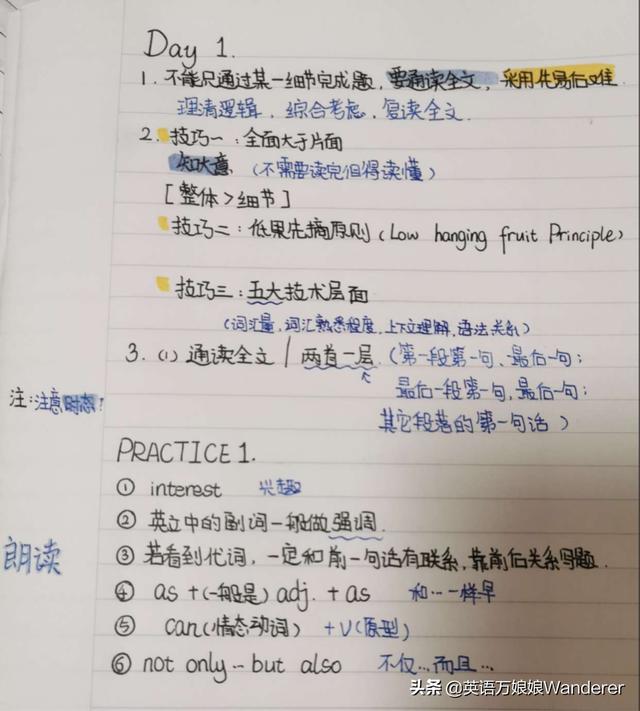 Day 1.
1. 不能只通过某一细节完成题，要通读全文，采用先易后难
理清逻辑，综合考虑，复读全文.
2. 技巧一：全面大于片面
知大意（不需要读完但得读懂）
[整体>细节]
技巧二：低果先摘原则（Low hanging fruit Principle）
技巧三：五大技术层面
（词汇量，词汇熟悉程度，上下文理解，语法关系）
3. (1) 通读全文 / 两首一层（第一段第一句、最后一句；
最后一段第一句，最后一句；
注：注意时态！
其它段落的第一句话）
PRACTICE 1.
① interest 兴趣
② 英文中的副词一般做强调.
朗读
③ 若看到代词，一定和前一句话有联系，靠前后关系写题.
④ as +(一般是) adj. + as 和…一样早
⑤ can(情态动词) +V(原型)
⑥ not only…but also 不仅…而且…
头条 @英语万娘娘Wanderer